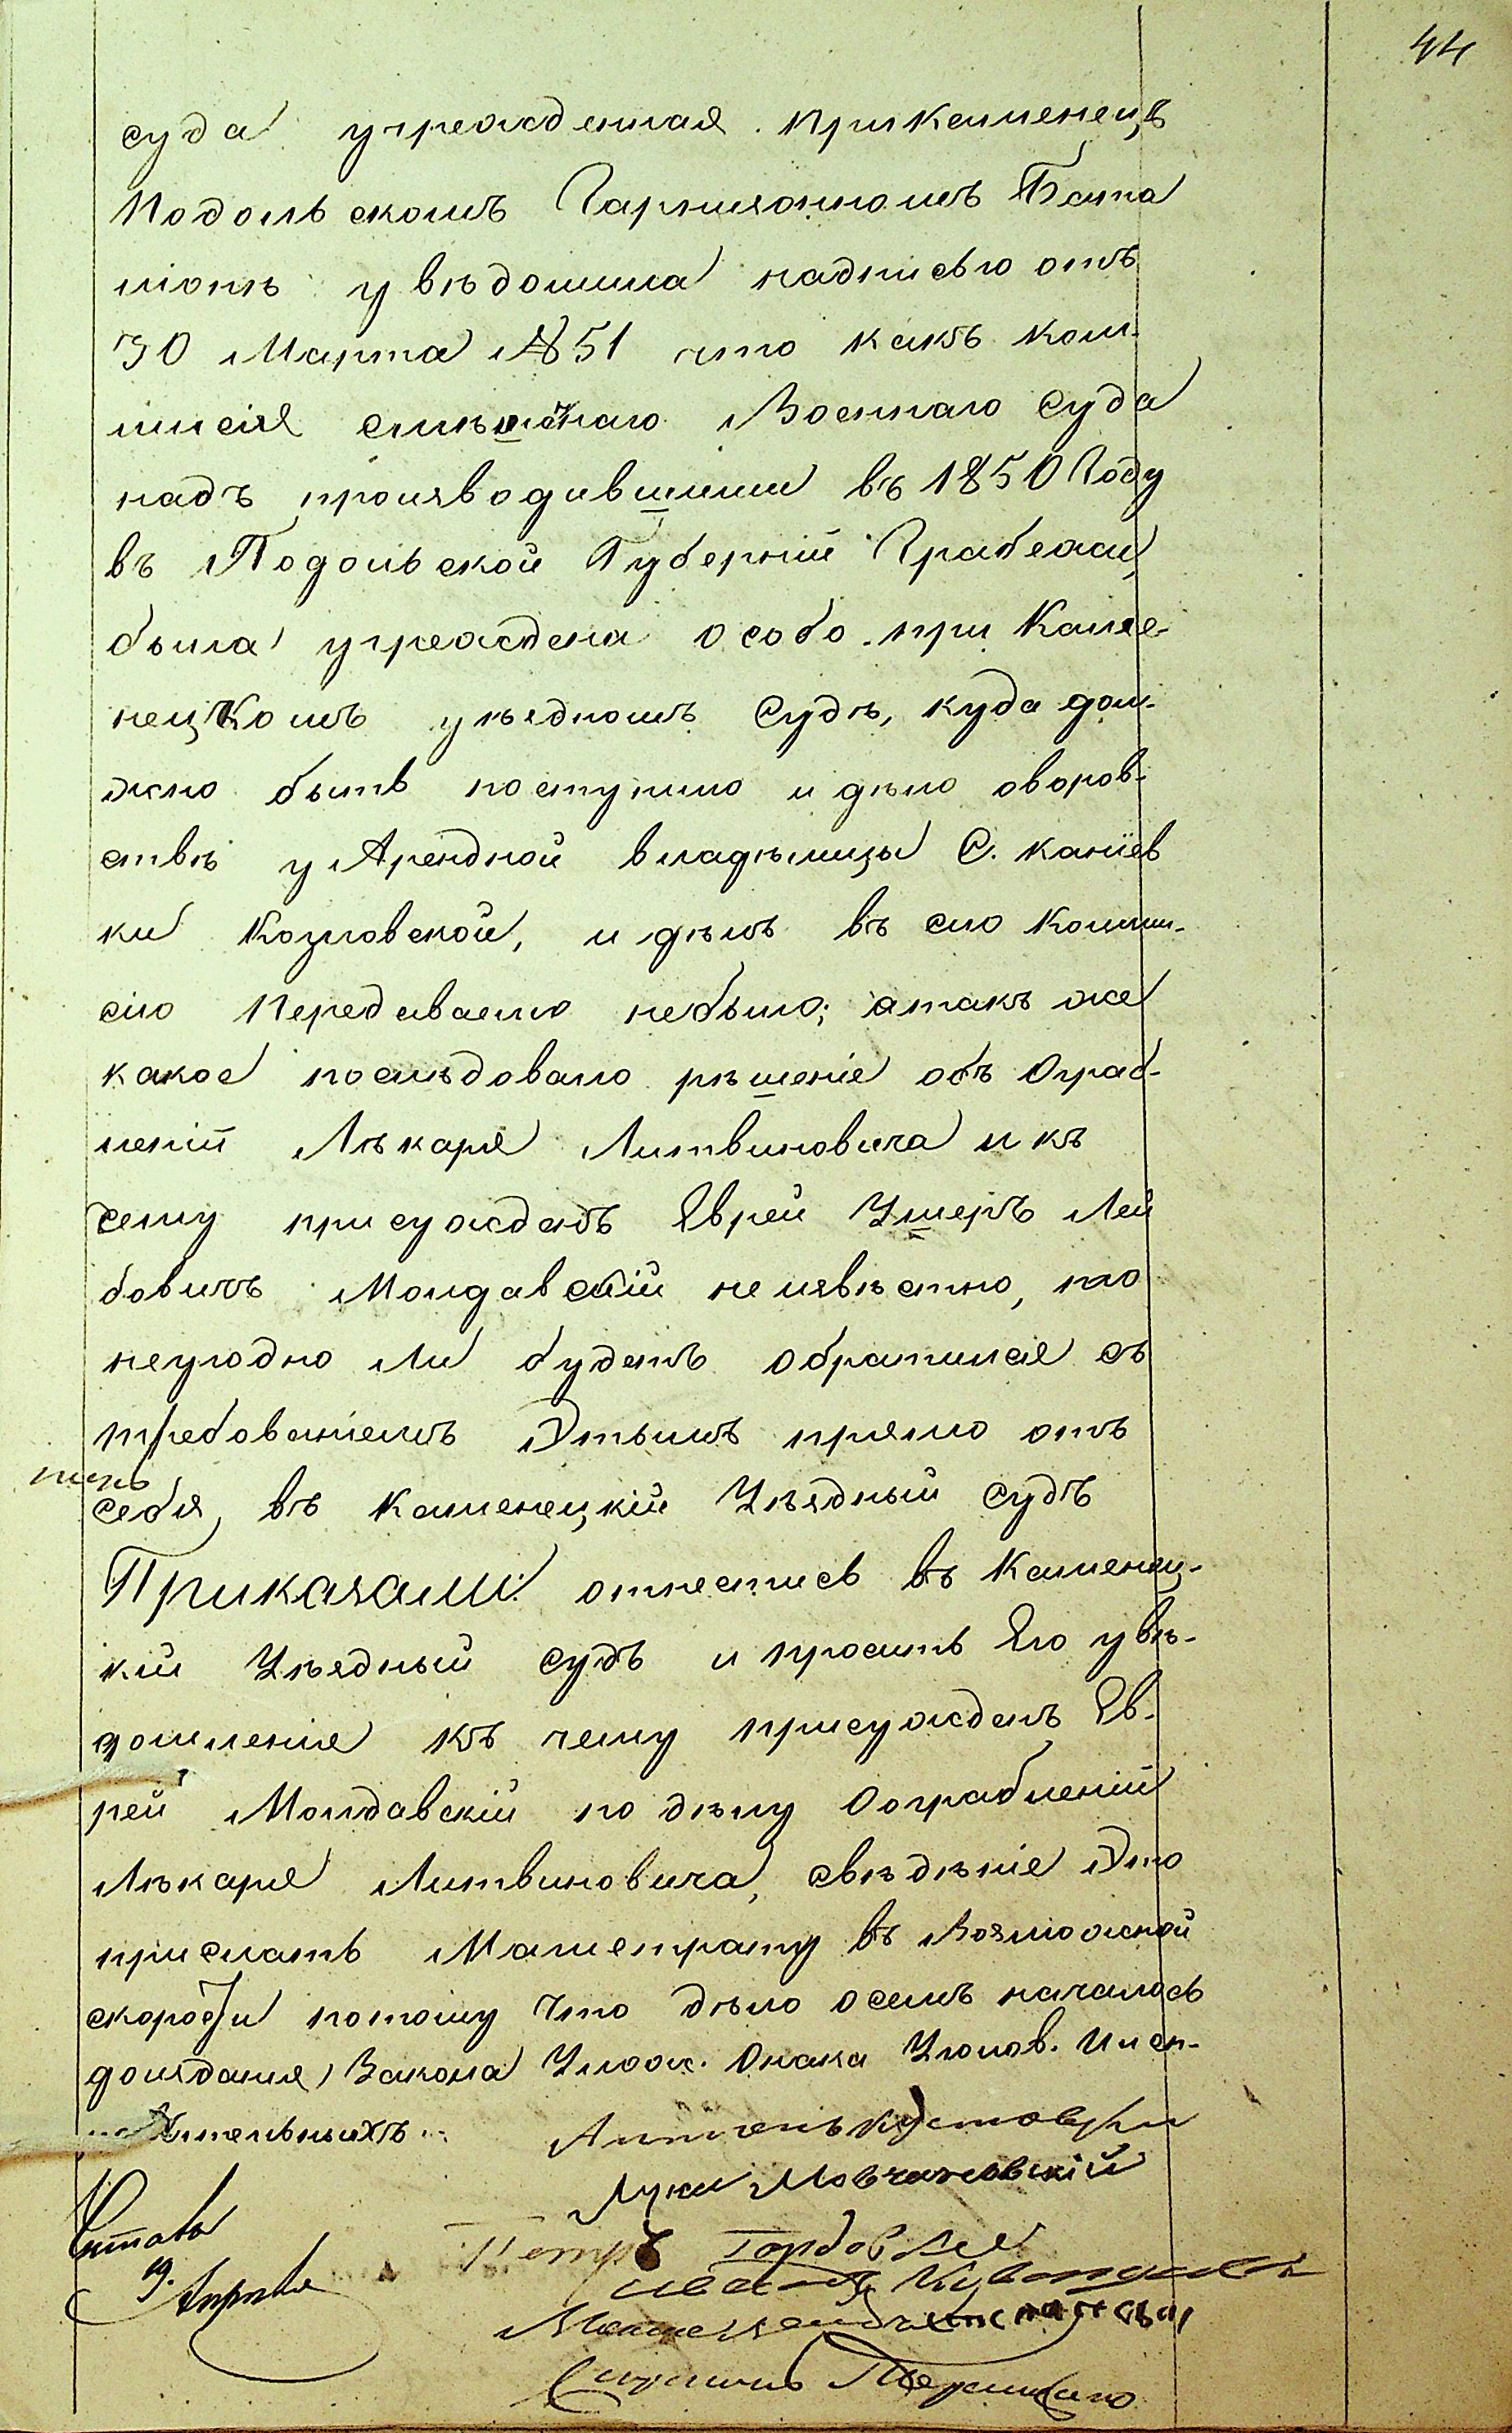 44
суда учрежденная при Каменецъ
Подольскомъ Гарнизонномъ Бата
ліонѣ увѣдомила надписью отъ
30 Марта №51 что какъ ком-
мисія Военнаго Суда
надъ производившими въ 1850 Году
въ Подольской Губерніи Грабежи,
была учреждена особо при Каме-
нецкомъ уѣздномъ Судѣ, куда дол-
жно быть поступило и дѣло оворов-
ствѣ у Арендной владѣлицы С. Каніев
ки Козловской, и дѣлъ въ сію Комми-
сію Передаваемо небыло; атакъ же
какое послѣдовало рѣшеніе объ Ограб-
леніи Лѣкаря Литвиновича и къ
чему присужденъ Еврей Ушеръ Лей
бовичъ Молдавскій неизвѣстно, то
неугодно ли будетъ обратится съ
требованіемъ Этымъ прямо отъ
себя, въ Каменецкій Уѣздный судъ
Приказали: отнестись въ Каменец-
кій Уѣздный судъ и просить Его увѣ-
домленія къ чему присужденъ Ев-
рей Молдавскій по дѣлу Оограбленіи
Лѣкаря Литвиновича, свѣдѣніе Это
прислать Магистрату въ Возможной
скорости потому что дѣло осемъ началось
доизданія Закона Улож. Онака Уголов. и исп-
равительныхъ
Лука Мовчановскій
Читалъ
Петръ